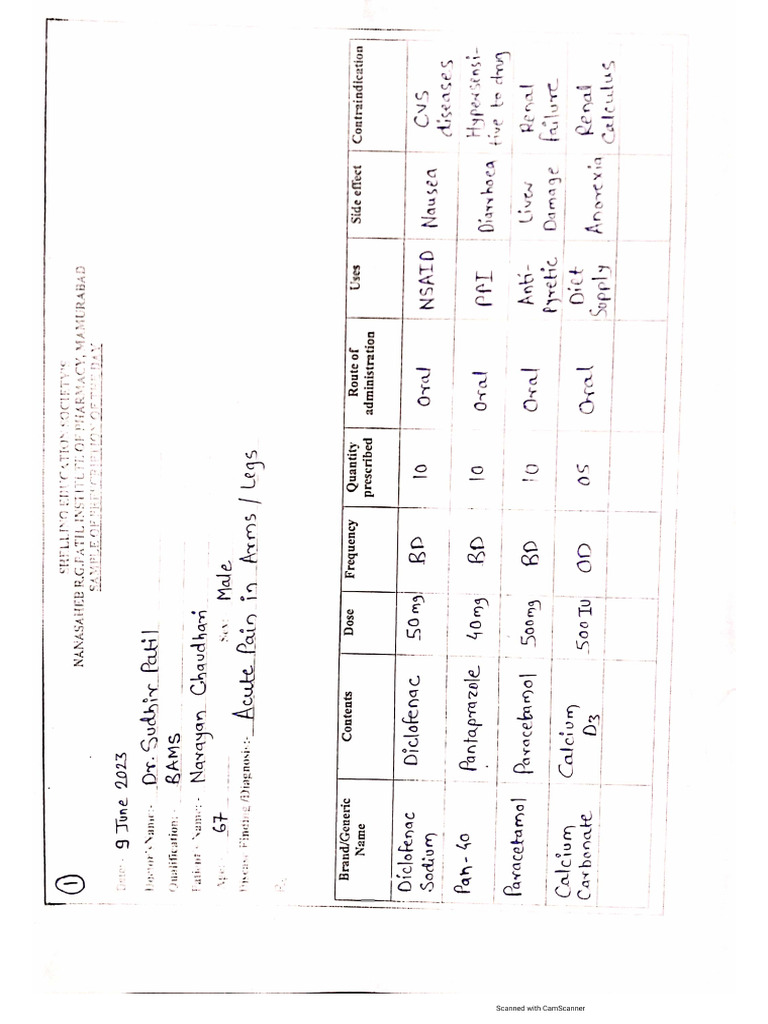 1
SHELLINO EDUCATION SOCIETY'S
NANASAHEB R.G.PATIL INSTITUTE OF PHARMACY, MAMURABAD
SAMPLE OF PRESCRIPTION OF THE DAY
Date:- 9 June 2023
Doctor's Name:- Dr. Sudhir Patil
Qualification:- BAMS
Patient's Name:- Narayan Chaudhari
Age:- 67 Sex: Male
Disease Finding /Diagnosis:- Acute Pain in Arms / Legs
Rx
Brand/Generic Name Contents Dose Frequency Quantity prescribed Route of administration Uses Side effect Contraindication
Diclofenac Sodium Diclofenac 50mg BD 10 Oral NSAID Nausea CVS diseases
Pan-40 Pantaprazole 40mg BD 10 Oral PPI Diarrhoea Hypersensi-tive to drug
Paracetamol Paracetamol 500mg BD 10 Oral Anti-Pyretic Liver Damage Renal failure
Calcium Carbonate Calcium D3 500 IU OD 05 Oral Diet Supply Anorexia Renal Calculus
Scanned with CamScanner